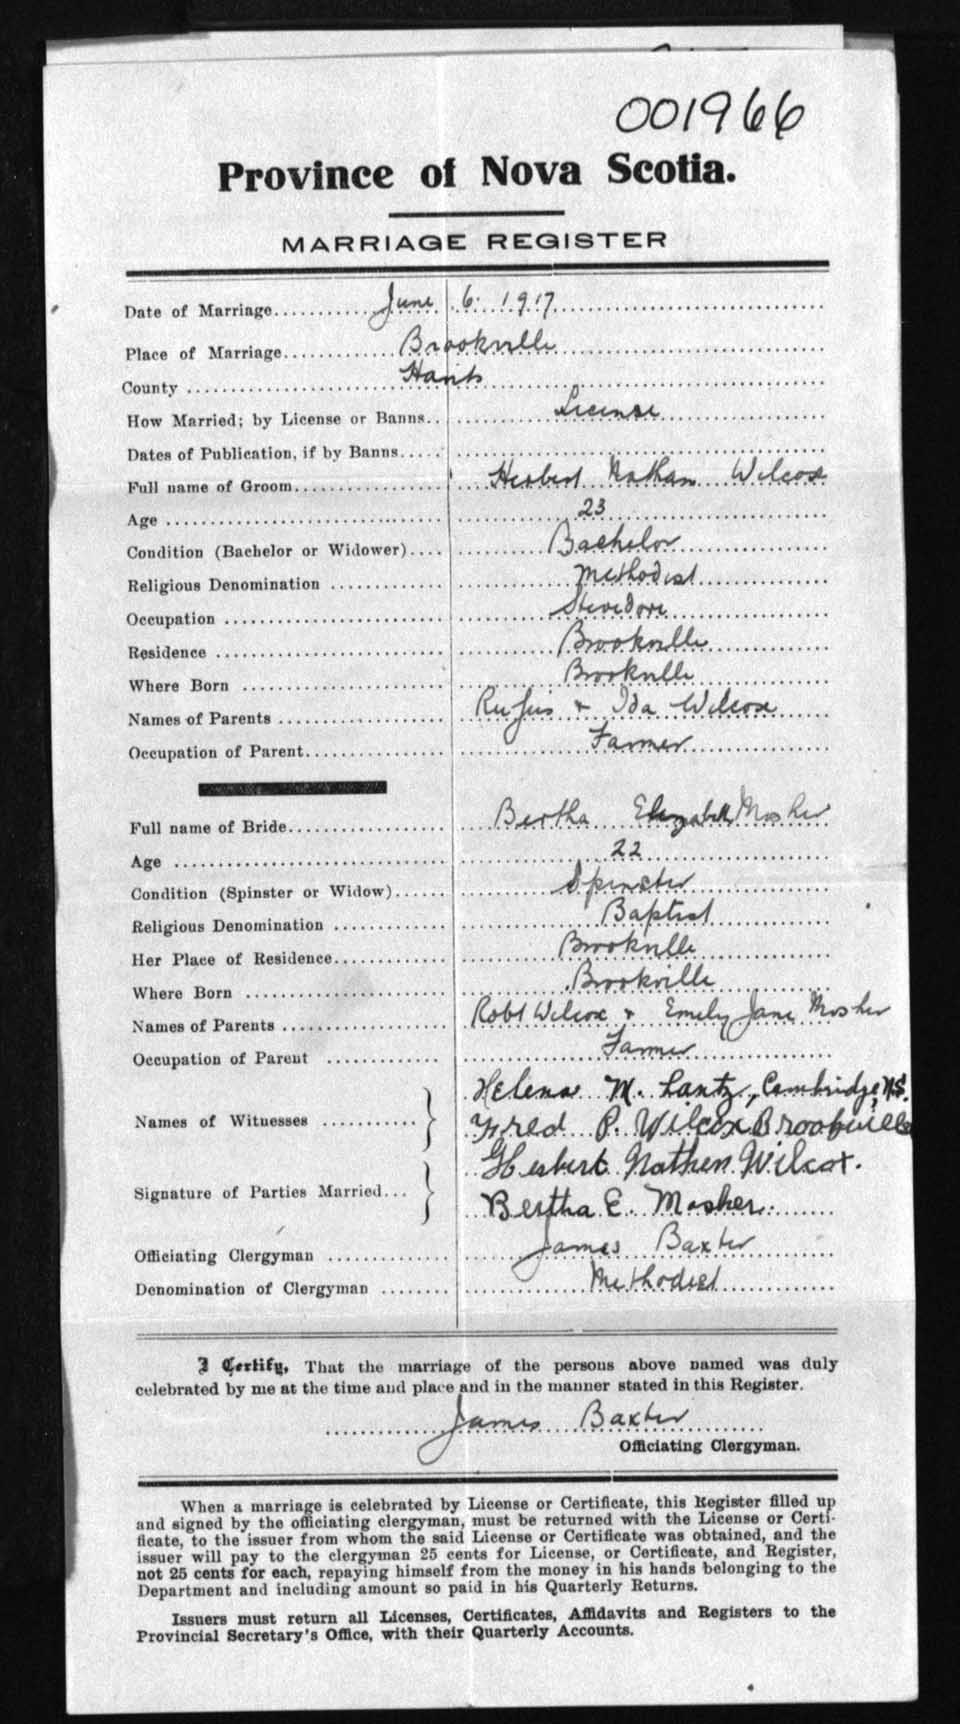 001966
Province of Nova Scotia.
MARRIAGE REGISTER
Date of Marriage............June 6. 1917
Place of Marriage............Brookville
County............Hants
How Married; by License or Banns..License
Dates of Publication, if by Banns.....
Full name of Groom............Herbert Nathan Wilcox
Age............23
Condition (Bachelor or Widower)....Bachelor
Religious Denomination............Methodist
Occupation............Stevedore
Residence............Brookville
Where Born............Brookville
Names of Parents............Rufus & Ida Wilcox
Occupation of Parent............Farmer
Full name of Bride............Bertha Elizabeth Mosher
Age............22
Condition (Spinster or Widow)......Spinster
Religious Denomination............Baptist
Her Place of Residence............Brookville
Where Born............Brookville
Names of Parents............Robt Wilcox & Emily Jane Mosher
Occupation of Parent............Farmer
Names of Witnesses............Helena M. Lantz, Cambridge, N.S.
Fred P. Wilcox Brookville
Signature of Parties Married...Herbert Nathen Wilcox.
Bertha E. Mosher.
Officiating Clergyman............James Baxter
Denomination of Clergyman........Methodist
I Certify, That the marriage of the persons above named was duly
celebrated by me at the time and place and in the manner stated in this Register.
James Baxter
Officiating Clergyman.
When a marriage is celebrated by License or Certificate, this Register filled up
and signed by the officiating clergyman, must be returned with the License or Certi-
ficate, to the issuer from whom the said License or Certificate was obtained, and the
issuer will pay to the clergyman 25 cents for License, or Certificate, and Register,
not 25 cents for each, repaying himself from the money in his hands belonging to the
Department and including amount so paid in his Quarterly Returns.
Issuers must return all Licenses, Certificates, Affidavits and Registers to the
Provincial Secretary's Office, with their Quarterly Accounts.